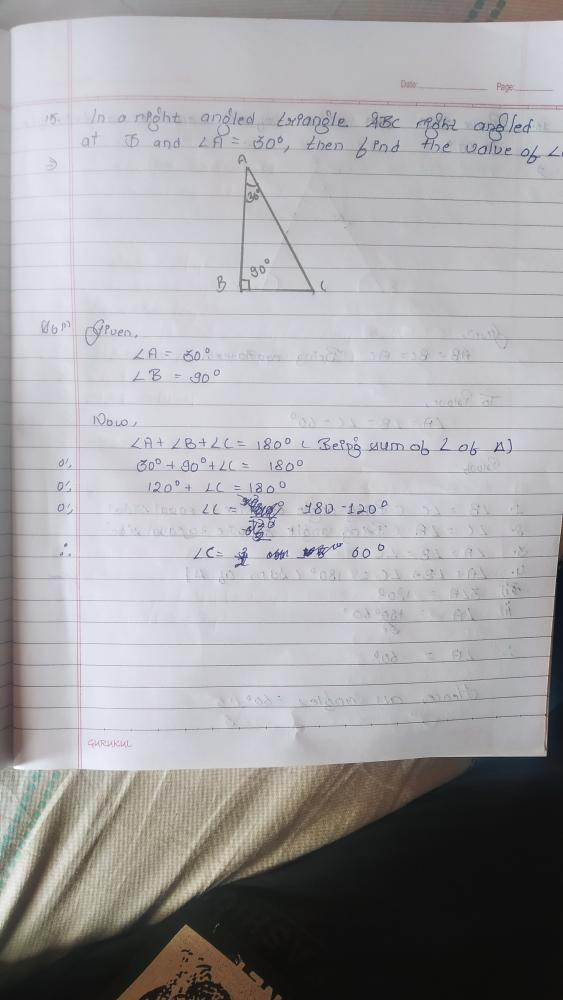 Date: Page:
15. In a right angled triangle ABC right angled
at B and ∠A = 30°, then find the value of ∠
⇒
A
30°
90°
B C
Given,
∠A = 30°
∠B = 90°
Now,
∠A + ∠B + ∠C = 180° ( Being sum of ∠ of Δ)
or, 30° + 90° + ∠C = 180°
or, 120° + ∠C = 180°
or, ∠C = 180 - 120°
∴ ∠C = 60°
GURUKUL